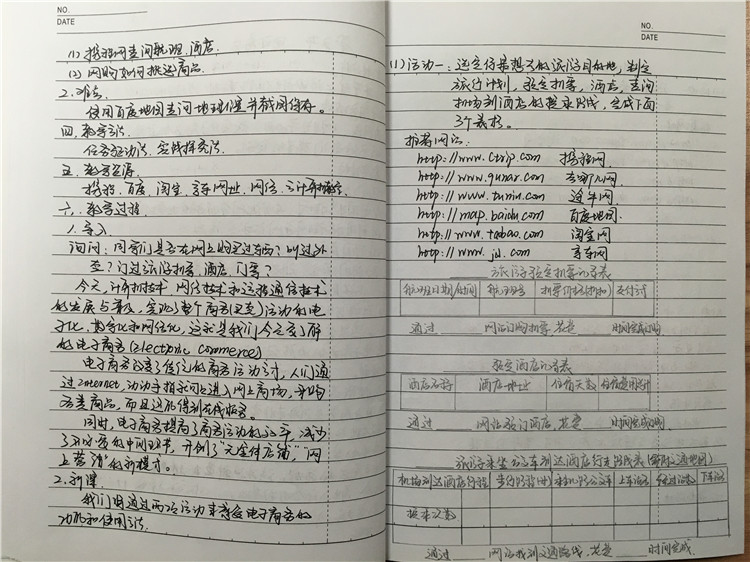 NO.
DATE
(1) 携程网查询航班、酒店
(2) 网购如何挑选商品
2.难点
使用百度地图查询地理位置并截图保存。
四、教学方法
任务驱动法、实践探究法
五、教学资源
携程、百度、淘宝、京东网址、网络、计算机教室
六、教学过程
1.导入
询问：同学们是否在网上购买过东西？叫过外
卖？订过旅游机票、酒店、门票？
今天，计算机技术、网络技术和远程通信技术
的发展与普及，实现了整个商务(买卖)活动的电
子化、数字化和网络化，这就是我们今天要了解
的电子商务(Electronic Commerce)
电子商务改变了传统的商务活动方式，人们通
过Internet，动动手指就可以进入网上商场，购买
各类商品，而且还能得到在线服务。
同时，电子商务提高了商务活动的水平，减少
了不必要的中间环节，开创了"无实体店铺"，"网
上营销"的新模式。
2.新课
我们将通过两项活动来感受电子商务的
功能和使用方法
NO.
DATE
(1)活动一：选定你最想去的旅游目的地，制定
旅行计划，预定机票，酒店，查询
机场到酒店的乘车路线，完成下面
3个表格。
推荐网站：
http://www.ctrip.com 携程网
http://www.qunar.com 去哪儿网
http://www.tuniu.com 途牛网
http://map.baidu.com 百度地图
http://www.tabao.com 淘宝网
http://www.jd.com 京东网
旅游预定机票的看表
航班日期/时间 航班号 机票价格(折扣) 支付方式
通过 网站订购机票,花费 时间完成订购
预定酒店的看表
酒店名称 酒店地址 住宿天数 住宿费用
通过 网站预订酒店,花费 时间完成
旅游乘坐公交车到达酒店行走路线表(实际交通地图)
机场到达酒店行程 步行路程(m) 乘机路公交车 上车站名 经过站数 下车站名
换乘次数
通过 网站找到交通路线,花费 时间完成